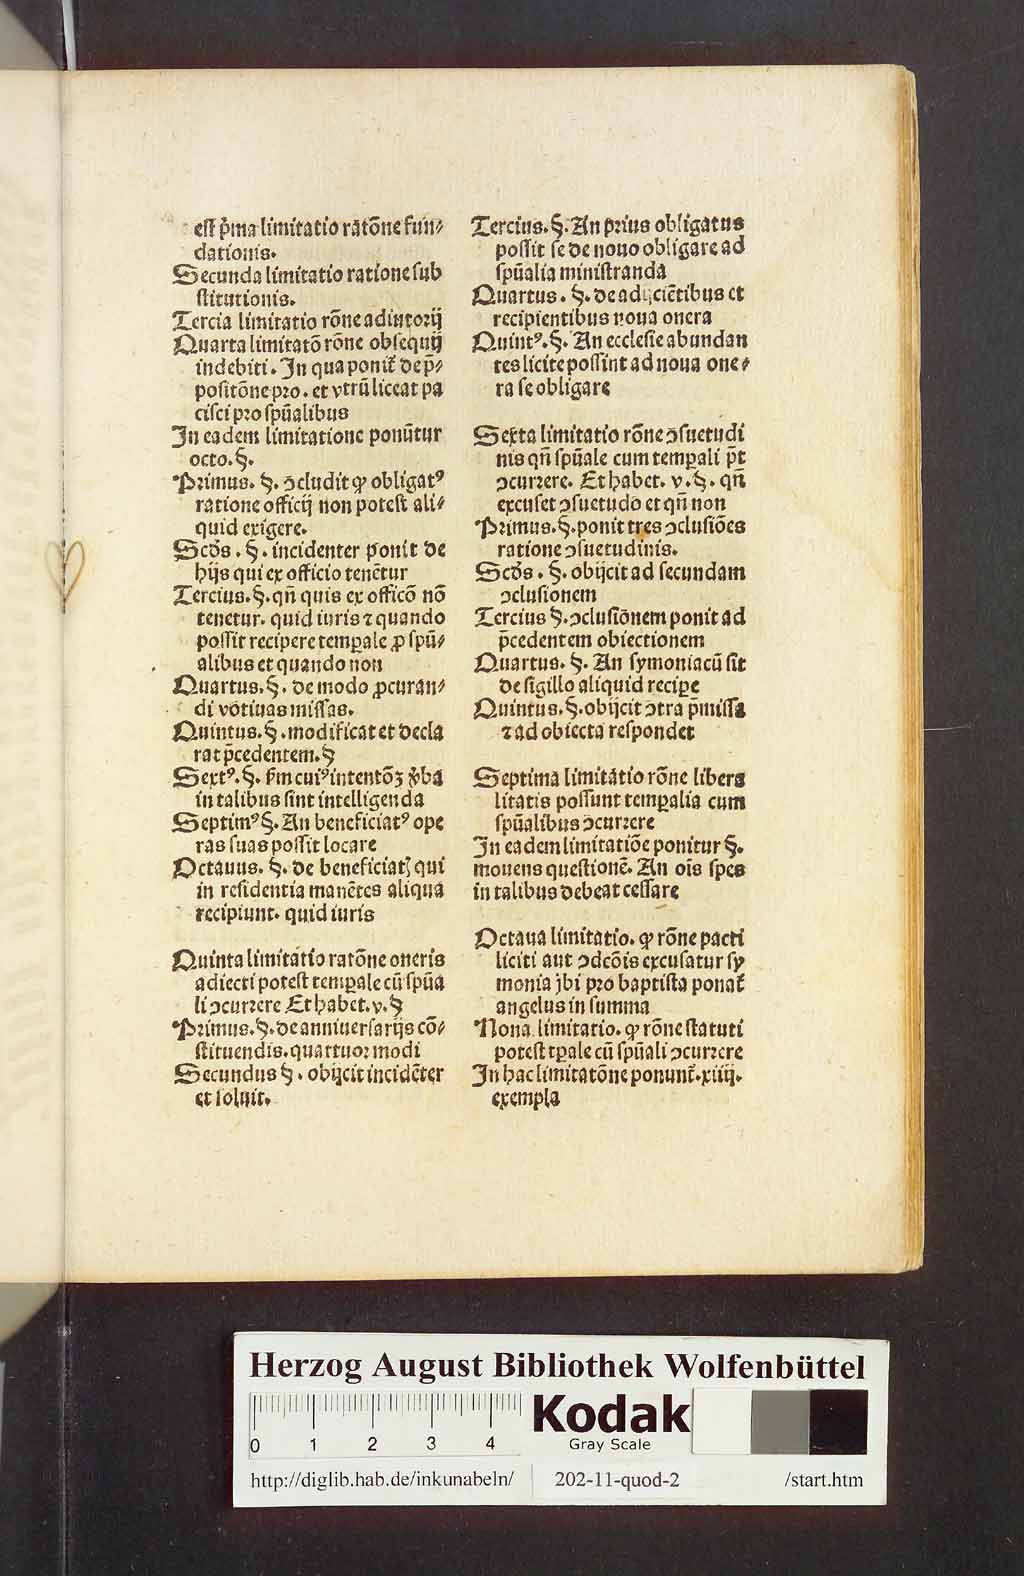 est p̃ma limitatio ratōne fun⸗
dationis.
Secunda limitatio ratione sub
stitutionis.
Tercia limitatio rōne adiutorij
Quarta limitatō rōne obsequij
indebiti. In qua ponit̃ de p̃⸗
positōne pro. et vtrũ liceat pa
cisci pro spũalibus
In eadem limitatione ponũtur
octo. §.
Primus. §. ɔcludit ꝙ obligatꝰ
ratione officij non potest ali⸗
quid exigere.
Scḋs. §. incidenter ponit de
hijs qui ex officio tenẽtur
Tercius. §. qñ quis ex officõ nõ
tenetur. quid iuris ⁊ quando
possit recipere temꝑale ꝓ spũ⸗
alibus et quando non
Quartus. §. de modo ꝓcuran⸗
di votiuas missas.
Quintus. §. modificat et decla
rat p̃cedentem. §
Sextꝰ. §. ẜm cuiꝰ intentōꝫ ꝟba
in talibus sint intelligenda
Septimꝰ §. An beneficiatꝰ ope
ras suas possit locare
Octauus. §. de beneficiatꝭ qui
in residentia manẽtes aliqua
recipiunt. quid iuris
Quinta limitatio ratōne oneris
adiecti potest temꝑale cũ spũa
li ɔcurrere Et habet. v. §
Primus. §. de anniuersarijs cõ⸗
stituendis. quattuor modi
Secundus §. obijcit incidẽter
et soluit.
Tercius. §. An prius obligatus
possit se de nouo obligare ad
spũalia ministranda
Quartus. §. de adijciẽtibus et
recipientibus noua onera
Quintꝰ. §. An ecclesie abundan
tes licite possint ad noua one⸗
ra se obligare
Sexta limitatio rōne ɔsuetudi
nis qñ spũale cum temꝑali p̃t
ɔcurrere. Et habet. v. §. qñ
excuset ɔsuetudo et qñ non
Primus. §. ponit tres ɔclusiões
ratione ɔsuetudinis.
Scḋs. §. obijcit ad secundam
ɔclusionem
Tercius §. ɔclusiōnem ponit ad
p̃cedentem obiectionem
Quartus. §. An symoniacũ sit
de sigillo aliquid recipe
Quintus. §. obijcit ɔtra p̃missa
⁊ ad obiecta respondet
Septima limitatio rōne libera
litatis possunt temꝑalia cum
spũalibus ɔcurrere
In eadem limitatiõe ponitur §.
mouens questionẽ. An oĩs spes
in talibus debeat cessare
Octaua limitatio. ꝙ rōne pacti
liciti aut ɔdcõis excusatur sy
monia jbi pro baptista ponat̃
angelus in summa
Nona limitatio. ꝙ rōne statuti
potest tꝑale cũ spũali ɔcurrere
In hac limitatōne ponunt̃. xiiij.
exempla
Herzog August Bibliothek Wolfenbüttel
0 1 2 3 4
Kodak
Gray Scale
http://diglib.hab.de/inkunabeln/ 202-11-quod-2 /start.htm